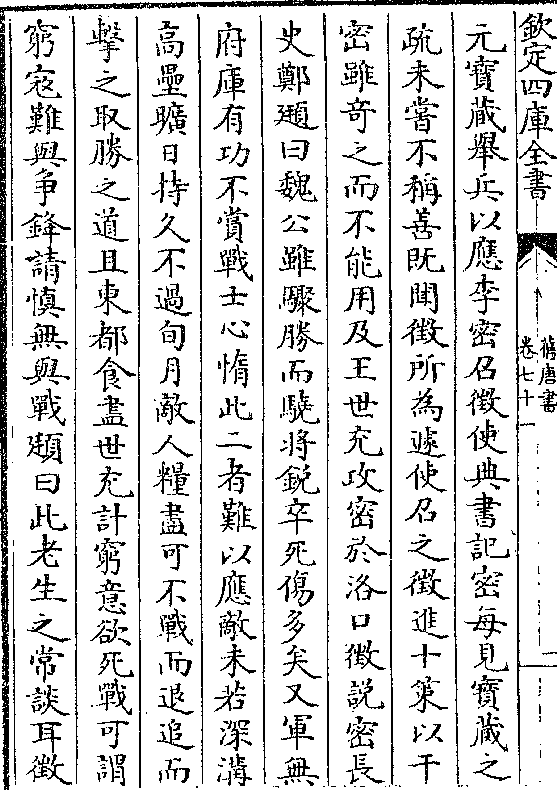 欽定四庫全書
舊唐書
卷七十一
元寶藏舉兵以應李密召徵使典書記密每見寶藏之
疏未嘗不稱善既聞徵所為遽使召之徵進十策以干
密雖奇之而不能用及王世充攻密於洛口徵説密長
史鄭頲曰魏公雖驟勝而驍将鋭卒死傷多矣又軍無
府庫有功不賞戰士心惰此二者難以應敵未若深溝
高壘曠日持久不過旬月敵人糧盡可不戰而退追而
擊之取勝之道且東都食盡世充計窮意欲死戰可謂
窮宼難與争鋒請慎無與戰頲曰此老生之常談耳徵